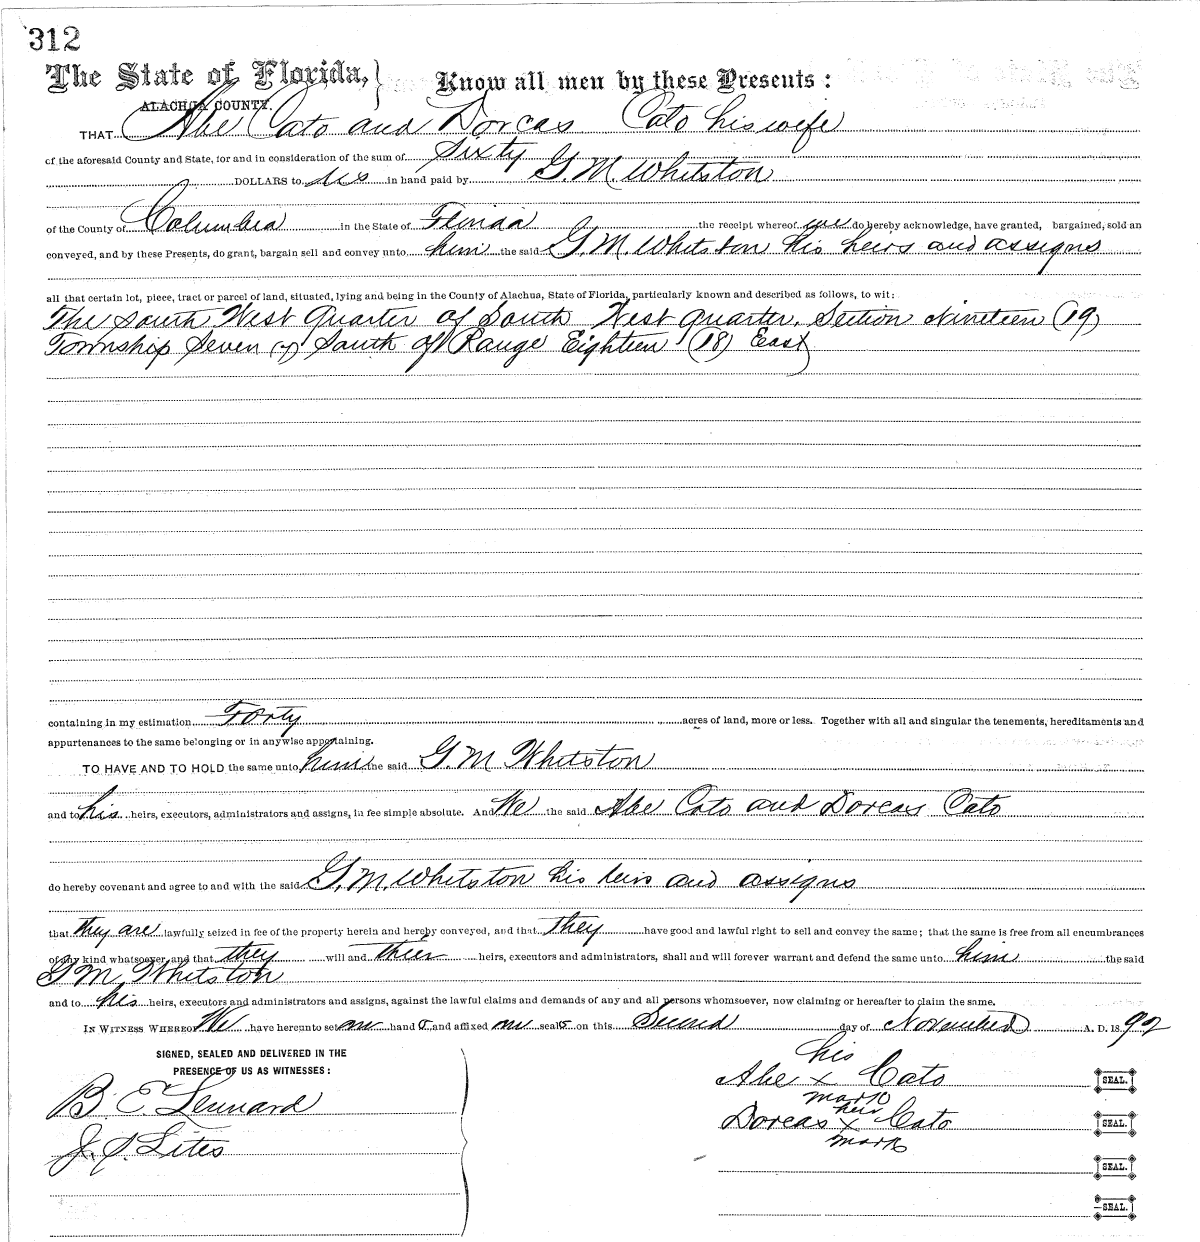 312
The State of Florida, Know all men by these Presents:
ALACHUA COUNTY.
THAT Abe Cato and Dorcas Cato his wife
of the aforesaid County and State, for and in consideration of the sum of Sixty
DOLLARS to us in hand paid by G. M. Whetston
of the County of Columbia in the State of Florida the receipt whereof we do hereby acknowledge, have granted, bargained, sold an
conveyed, and by these Presents, do grant, bargain sell and convey unto him the said G. M. Whetston his heirs and assigns
all that certain lot, piece, tract or parcel of land, situated, lying and being in the County of Alachua, State of Florida, particularly known and described as follows, to wit:
The South West Quarter of South West Quarter, Section Nineteen (19)
Township Seven (7) South of Range Eighteen (18) East
containing in my estimation Forty acres of land, more or less. Together with all and singular the tenements, hereditaments and
appurtenances to the same belonging or in anywise appertaining.
TO HAVE AND TO HOLD the same unto him the said G M Whetston
and to his heirs, executors, administrators and assigns, in fee simple absolute. And We the said Abe Cato and Dorcas Cato
do hereby covenant and agree to and with the said G. M. Whetston his heirs and assigns
that they are lawfully seized in fee of the property herein and hereby conveyed, and that they have good and lawful right to sell and convey the same; that the same is free from all encumbrances
of any kind whatsoever, and that they will and thier heirs, executors and administrators, shall and will forever warrant and defend the same unto him the said
G M Whetston
and to his heirs, executors and administrators and assigns, against the lawful claims and demands of any and all persons whomsoever, now claiming or hereafter to claim the same.
IN WITNESS WHEREOF We have hereunto set our hand s and affixed our seal s on this Second day of November A. D. 1892
SIGNED, SEALED AND DELIVERED IN THE
PRESENCE OF US AS WITNESSES:
his
Abe x Cato SEAL.
mark
B. E. Lennard
her
Dorcas x Cato SEAL.
mark
J. S. Lites
SEAL.
SEAL.